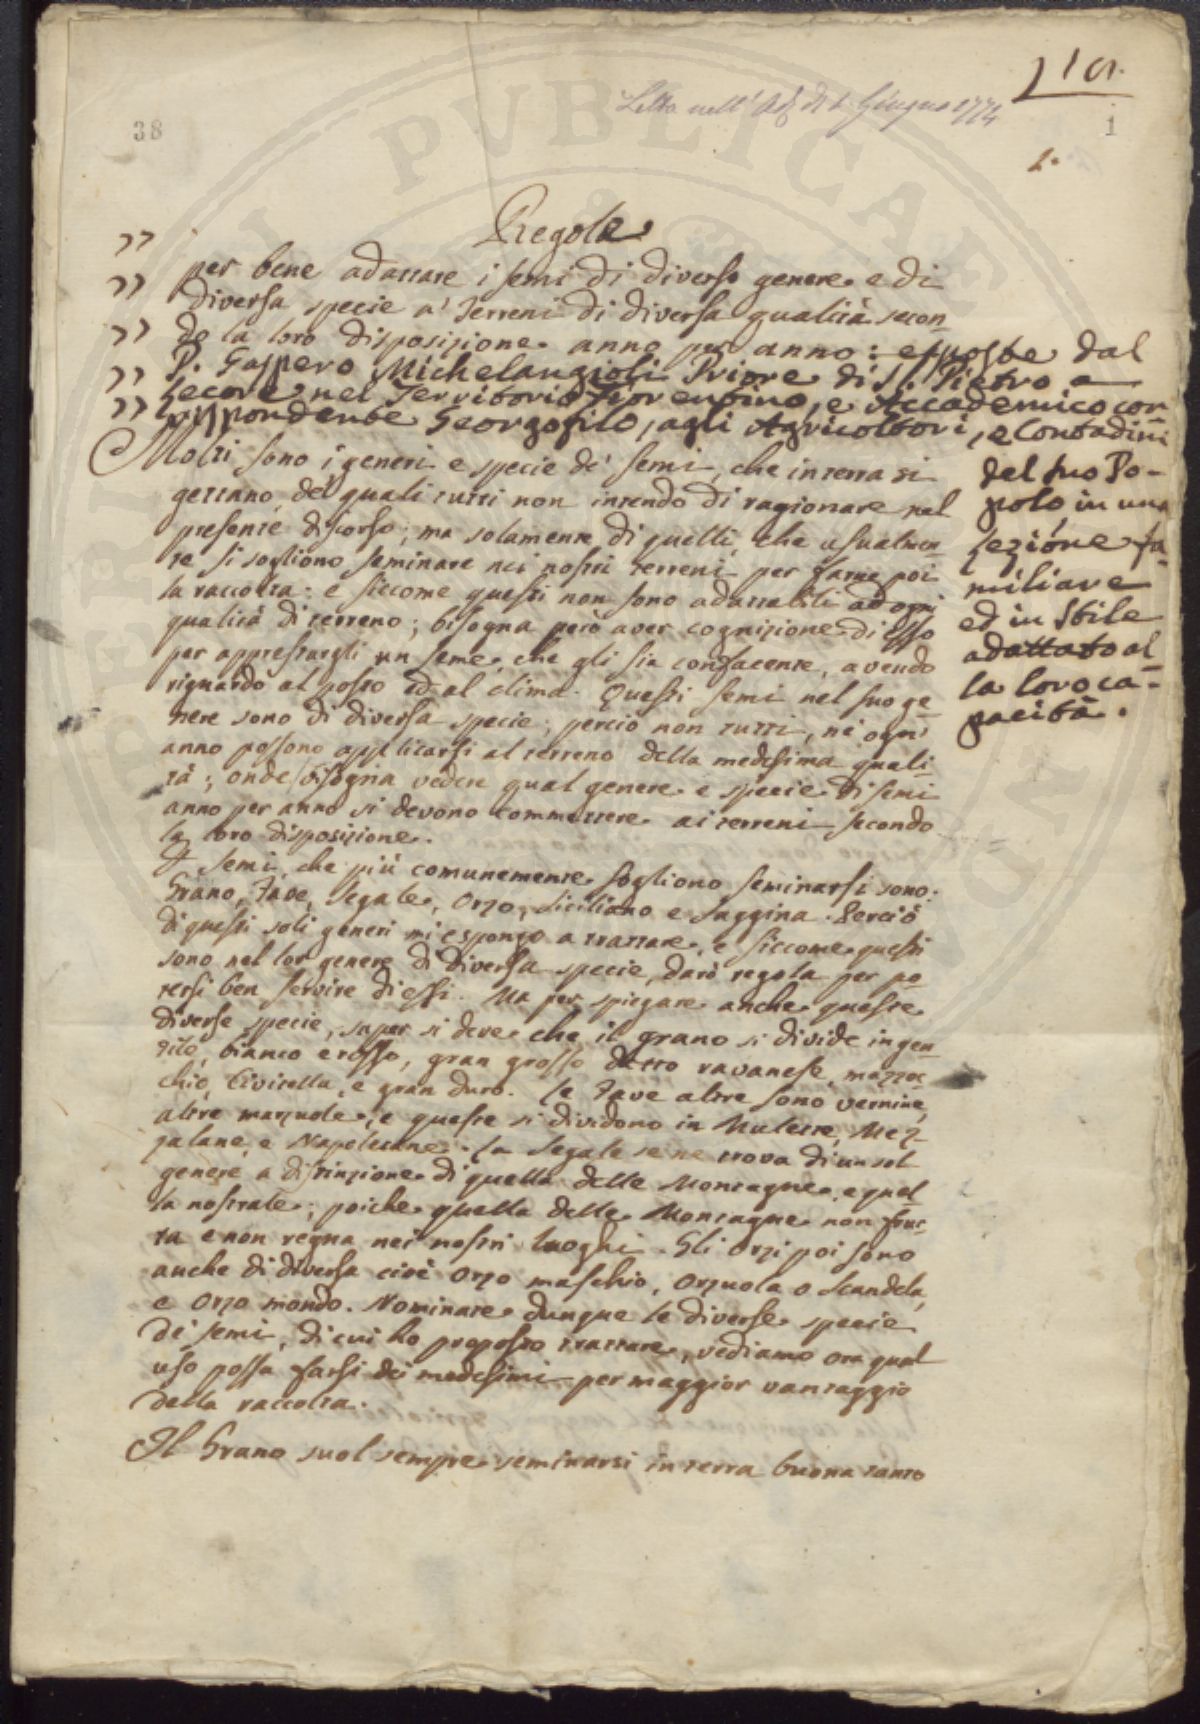 38
Letta nell' Ad. de 1 Giugno 1774
1
Regole
per bene adattare i semi di diverso genere e di
diversa specie a' Terreni di diversa qualità secon-
do la loro disposizione anno per anno: esposte dal
P. Gaspero Michelangioli Priore di S. Pietro a
Cecore nel Territorio Fiorentino, e Accademico cor
rispondente Georgofilo, agli Agricoltori, e Contadini
del suo Po-
polo in una
lezióne fa-
miliare
ed in stile
adattato al
la loro ca-
pacità.
Molti sono i generi e specie de' semi, che in terra si
gettano, de' quali tutti non intendo di ragionare nel
presente discorso; ma solamente di quelli, che usualmen-
te si sogliono seminare nei nostri terreni per farne poi
la raccolta: e siccome questi non sono adattabili ad ogni
qualità di terreno; bisogna però aver cognizione di esso
per apprestargli un seme, che gli sia confacente, avendo
riguardo al posto ed al clima. Questi semi nel suo ge-
nere sono di diversa specie; perciò non tutti, nè ogni
anno possono applicarsi al terreno della medesima quali-
tà; onde bisogna vedere qual genere e specie di semi
anno per anno si devono commettere ai terreni secondo
la loro disposizione.
I semi, che più comunemente sogliono seminarsi sono:
Grano, Fave, Segale, Orzo, Siciliano e Saggina. Perciò
di questi soli generi mi espongo a trattare, e siccome questi
sono nel lor genere di diversa specie, darò regola per po
tersi ben servire di essi. Ma per spiegare anche queste
diverse specie, saper si deve che il grano si divide in gen-
tile, bianco e rosso, gran grosso detto ravanese, mazzoc
chio, Civitella, e gran duro. Le Fave altre sono vernine,
altre marzuole, e queste si dividono in Mulette, Mez-
zalane, e Napoletane. La Segale se ne trova di un sol
genere a distinzione di quella delle Montagne, e quel
la nostrale; poiche quella delle Montagne non frut-
ta e non regna nei nostri luoghi. Gli Orzi poi sono
anche di diversa cioè Orzo maschio, Orzuola o Scandela,
e Orzo mondo. Nominate dunque le diverse specie
de' semi, di cui ho proposto trattare, vediamo ora qual
uso possa farsi dei medesimi per maggior vantaggio
della raccolta.
Il Grano suol sempre seminarsi in terra buona tanto